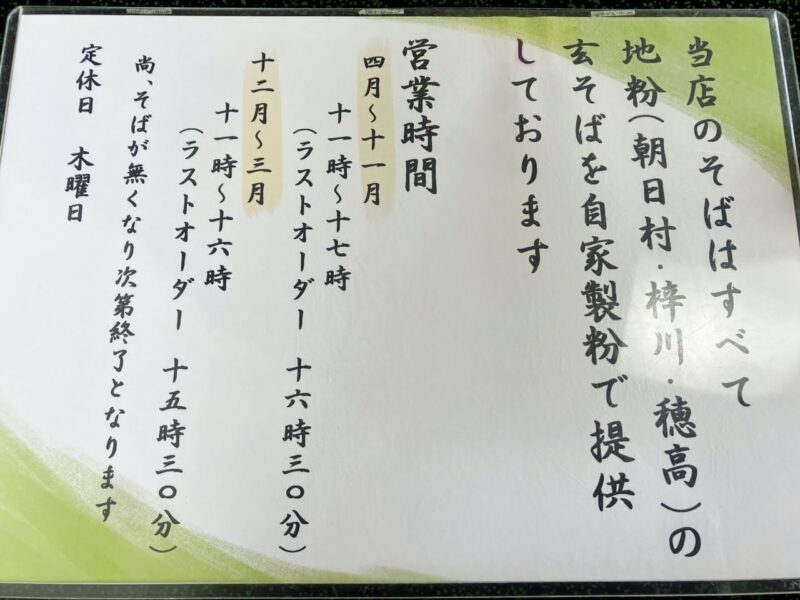 当店のそばはすべて
地粉(朝日村・梓川・穂高)の
玄そばを自家製粉で提供
しております
営業時間
四月〜十一月
十一時〜十七時
(ラストオーダー 十六時三〇分)
十二月〜三月
十一時〜十六時
(ラストオーダー 十五時三〇分)
尚、そばが無くなり次第終了となります
定休日 木曜日